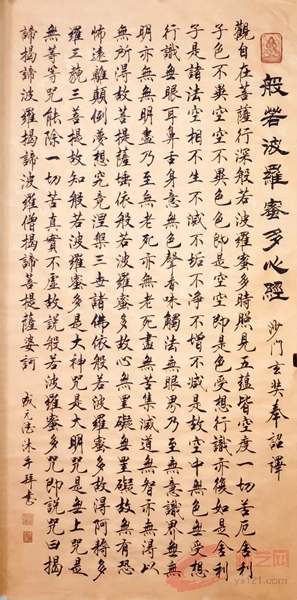 般若波羅蜜多心經 沙門玄奘奉詔譯
觀自在菩薩行深般若波羅蜜多時照見五蘊皆空度一切苦厄舍利
子色不異空空不異色色即是空空即是色受想行識亦復如是舍利
子是諸法空相不生不滅不垢不淨不增不減是故空中無色無受想
行識無眼耳鼻舌身意無色聲香味觸法無眼界乃至無意識界無無
明亦無無明盡乃至無老死亦無老死盡無苦集滅道無智亦無得以
無所得故菩提薩埵依般若波羅蜜多故心無罣礙無罣礙故無有恐
怖遠離顛倒夢想究竟涅槃三世諸佛依般若波羅蜜多故得阿耨多
羅三藐三菩提故知般若波羅蜜多是大神咒是大明咒是無上咒是
無等等咒能除一切苦真實不虛故說般若波羅蜜多咒即說咒曰揭
諦揭諦波羅揭諦波羅僧揭諦菩提薩婆訶 沐手拜書
艺网